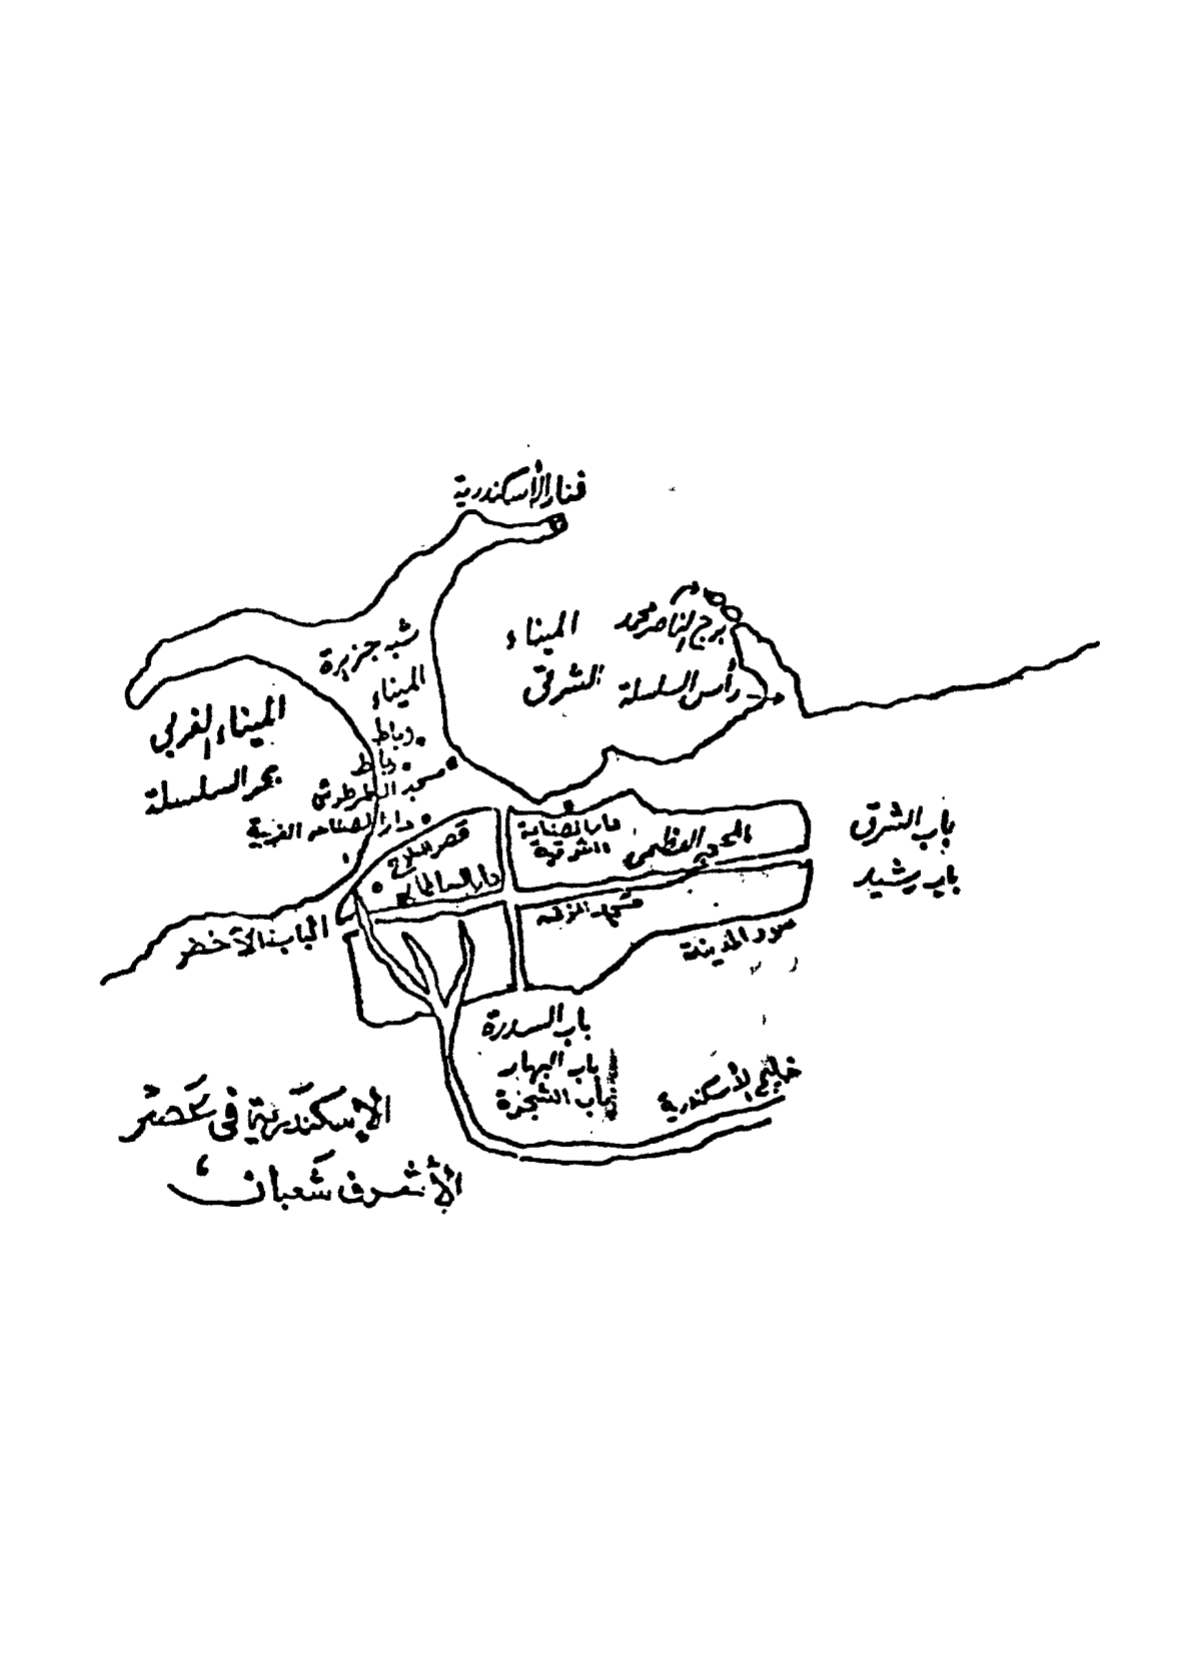 فنار الأسكندرية
برج الناصر محمد
الميناء
الشرقى
رأس السلسلة
شبه جزيرة
الميناء
الميناء الغربي
بحر السلسلة
رباط
رباط
مسجد الطرطوشى
دار الصناعه الغربية
قصر السلاح
دار الصناعة
الشرقية
المحجة العظمى
باب الشرق
باب رشيد
دار السلطان
مسجد
سور المدينة
الباب الأخضر
باب السدرة
باب البهار
باب الشجرة
خليج الأسكندرية
الإسكندرية فى عصر
الأشرف شعبان